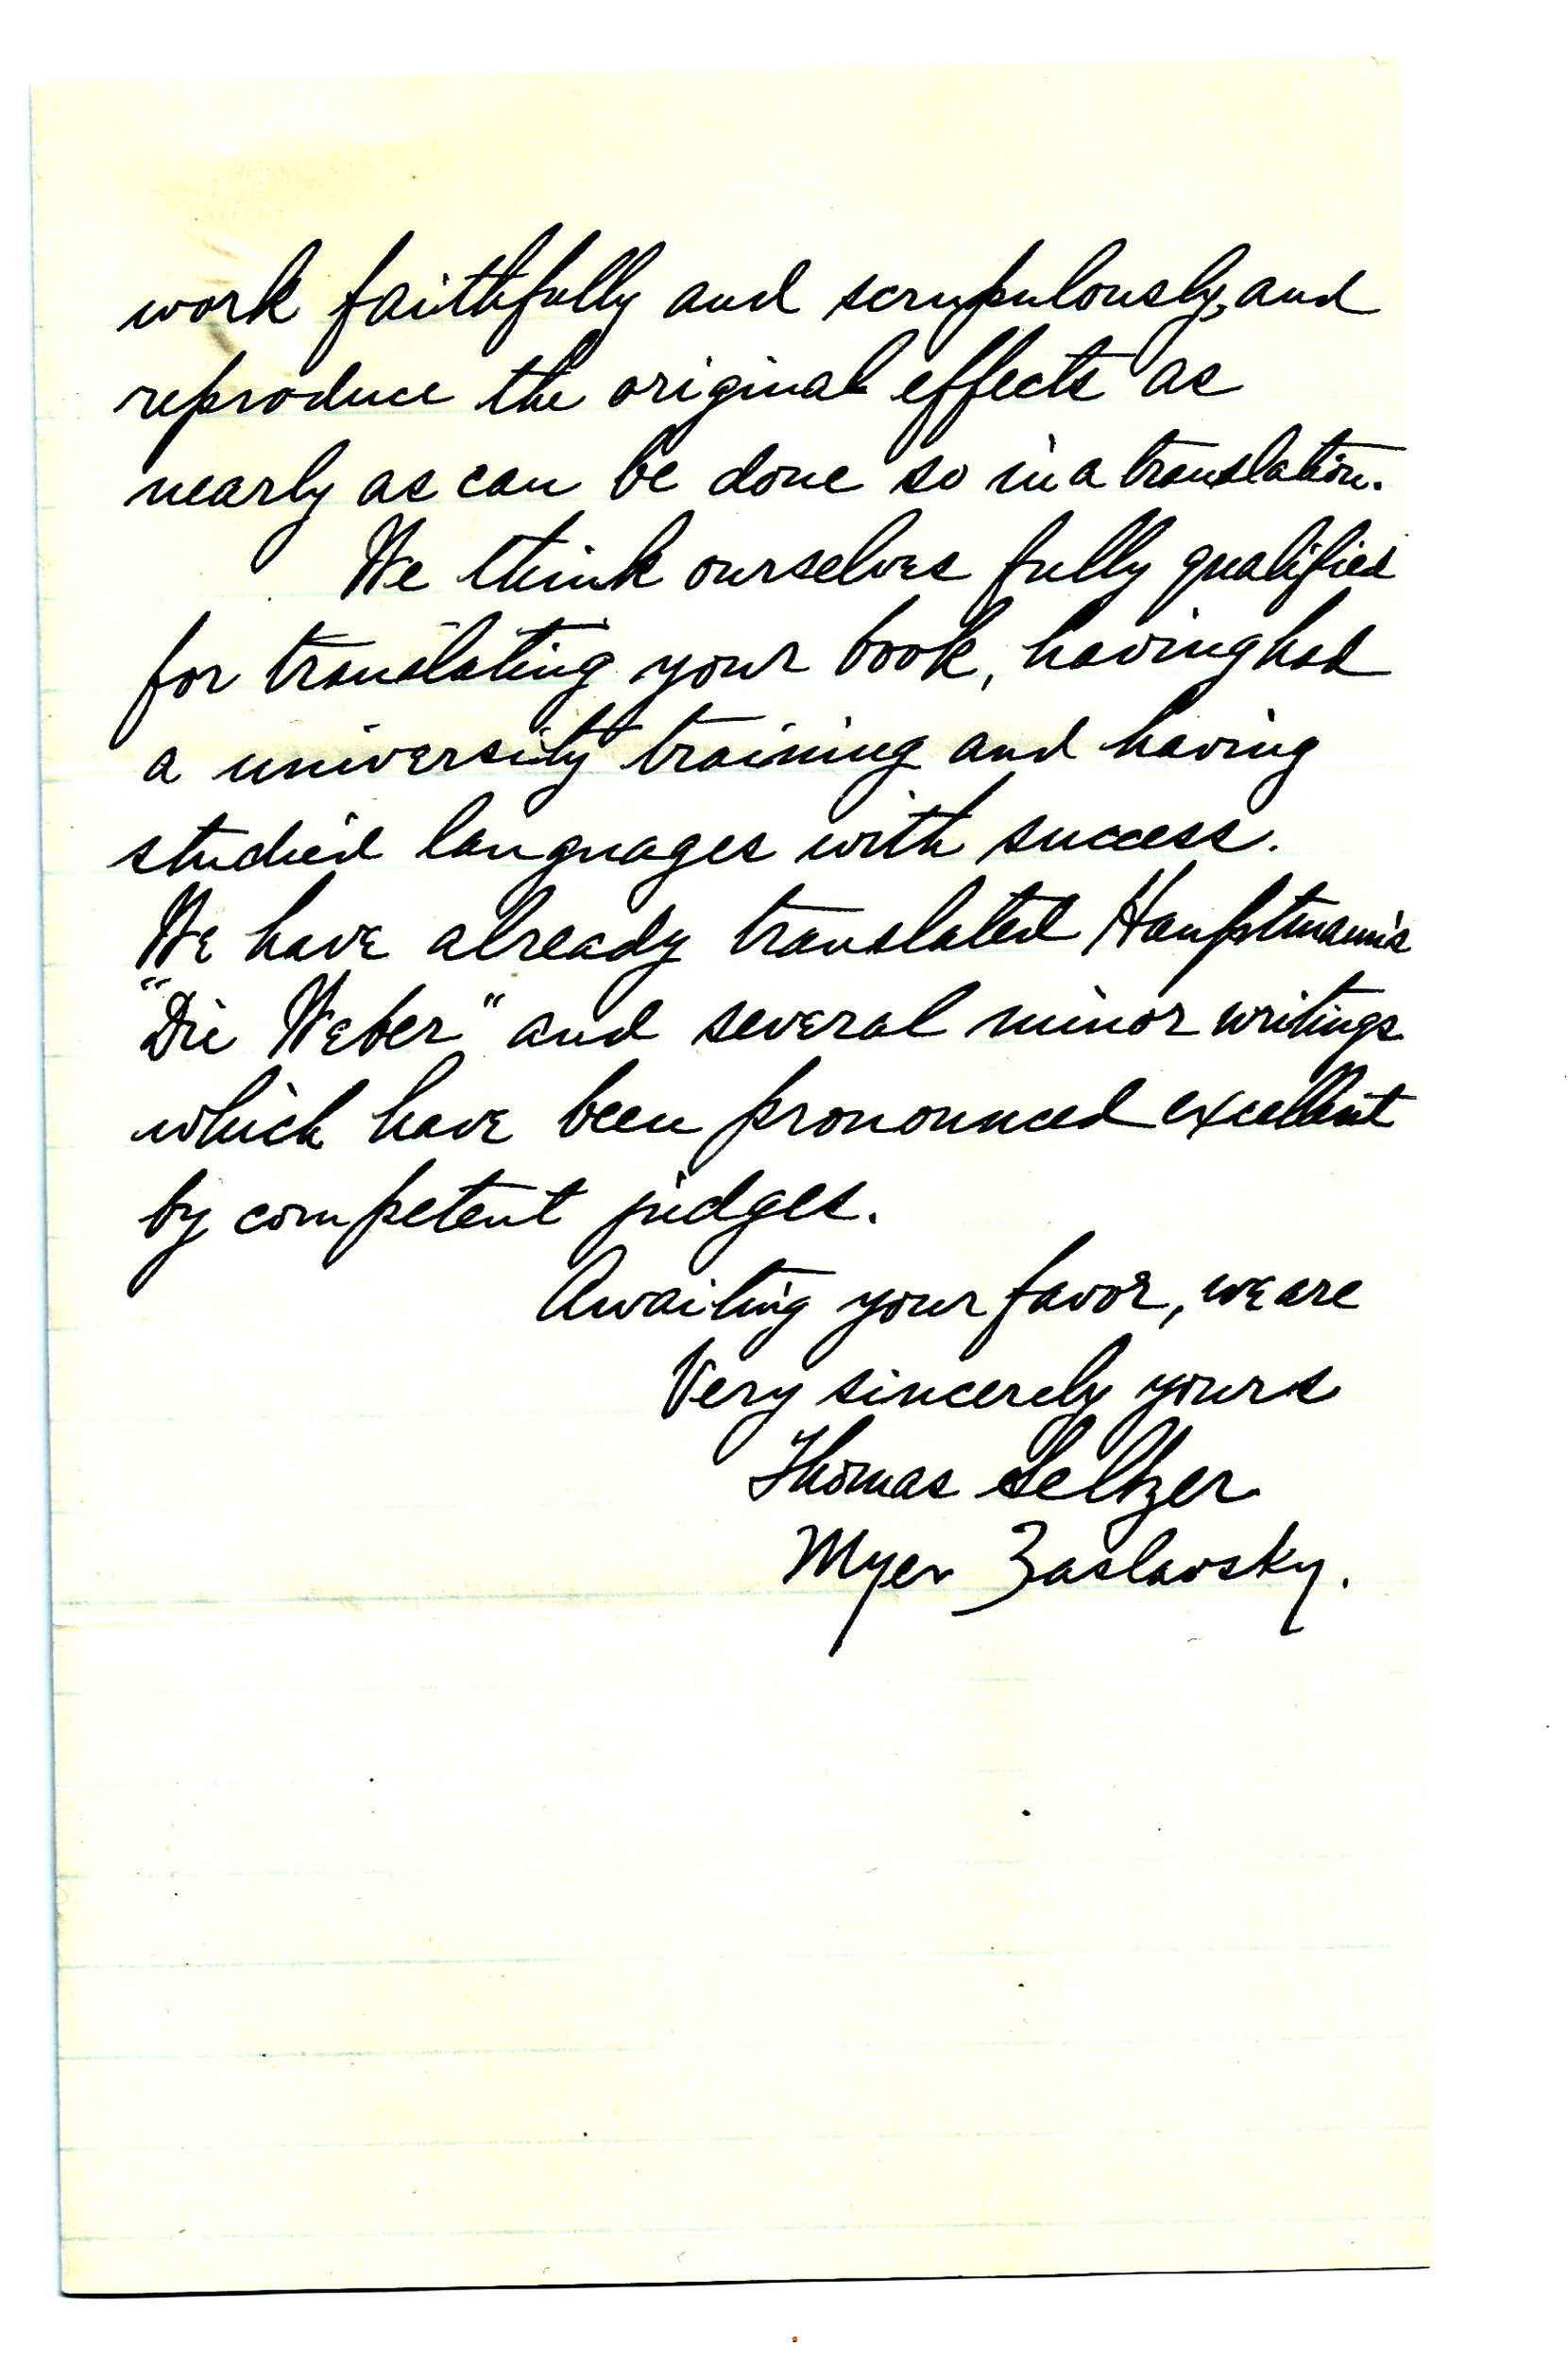 work faithfully and scrupulously, and
reproduce the original effects as
nearly as can be done so in a translation.
We think ourselves fully qualified
for translating your book, having had
a university training and having
studied languages with success.
We have already translated Hauptmann's
"Die Weber" and several minor writings
which have been pronounced excellent
by competent judges.
Awaiting your favor, we are
Very sincerely yours
Thomas Seltzer
Myer Zaslavsky.